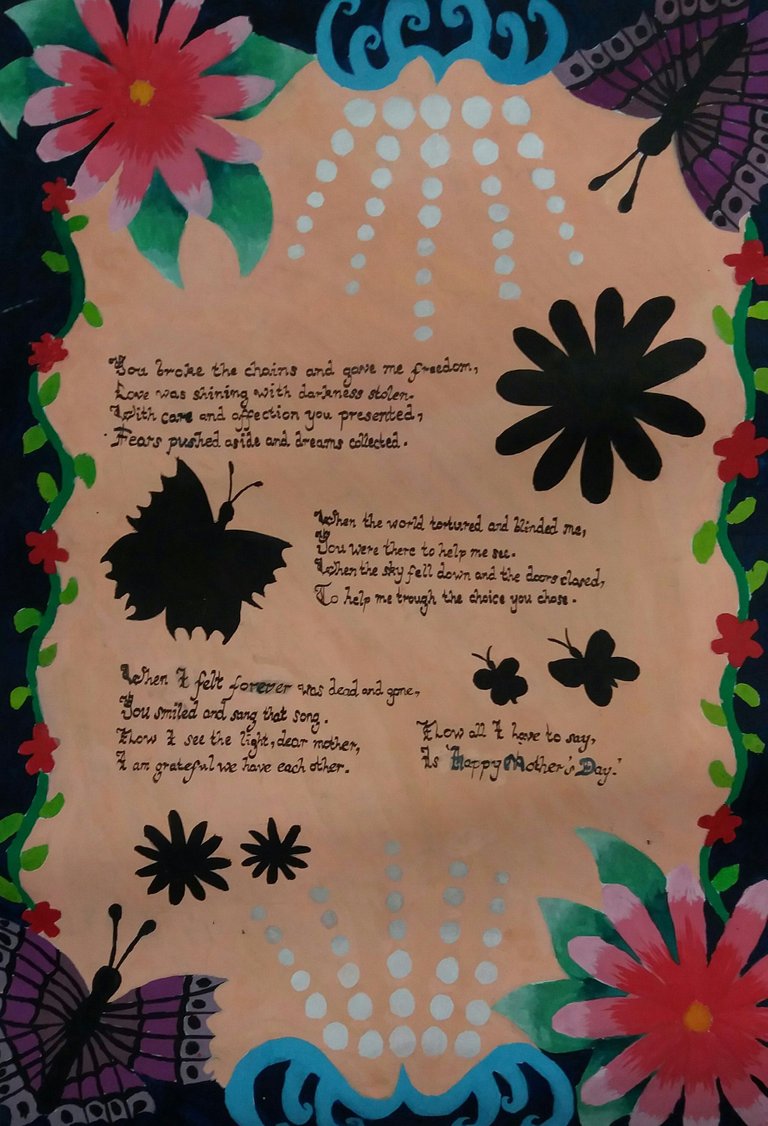 You broke the chains and gave me freedom,
Love was shining with darkness stolen.
With care and affection you presented,
Fears pushed aside and dreams collected.
When the world tortured and blinded me,
You were there to help me see.
When the sky fell down and the doors closed,
To help me trough the choice you chose.
When I felt forever was dead and gone,
You smiled and sang that song.
Now I see the light, dear mother,
I am grateful we have each other.
Now all I have to say,
Is "Happy Mother's Day."